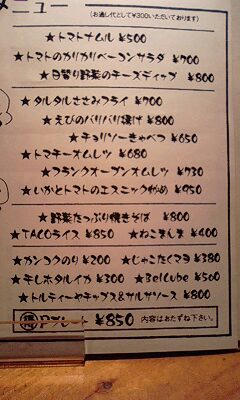 メニュー
(お通し代として¥300いただいております)
★トマトナムル ¥500
★トマトのカリカリベーコンサラダ ¥700
★日替り野菜のチーズディップ ¥800
★タルタルささみフライ ¥700
★えびのパリパリ揚げ ¥800
★チョリソーきゃべつ ¥650
★トマチーオムレツ ¥680
★フランクオープンオムレツ ¥730
★いかとトマトのエスニック炒め ¥950
★野菜たっぷり焼きそば ¥800
★TACOライス ¥850 ★ねこまんま ¥400
★カンコクのり ¥200 ★じゃこたくマヨ ¥380
★干しホタルイカ ¥300 ★BelCube ¥500
★トルティーヤチップス&サルサソース ¥800
得Pプレート ¥850 内容はおたずね下さい。